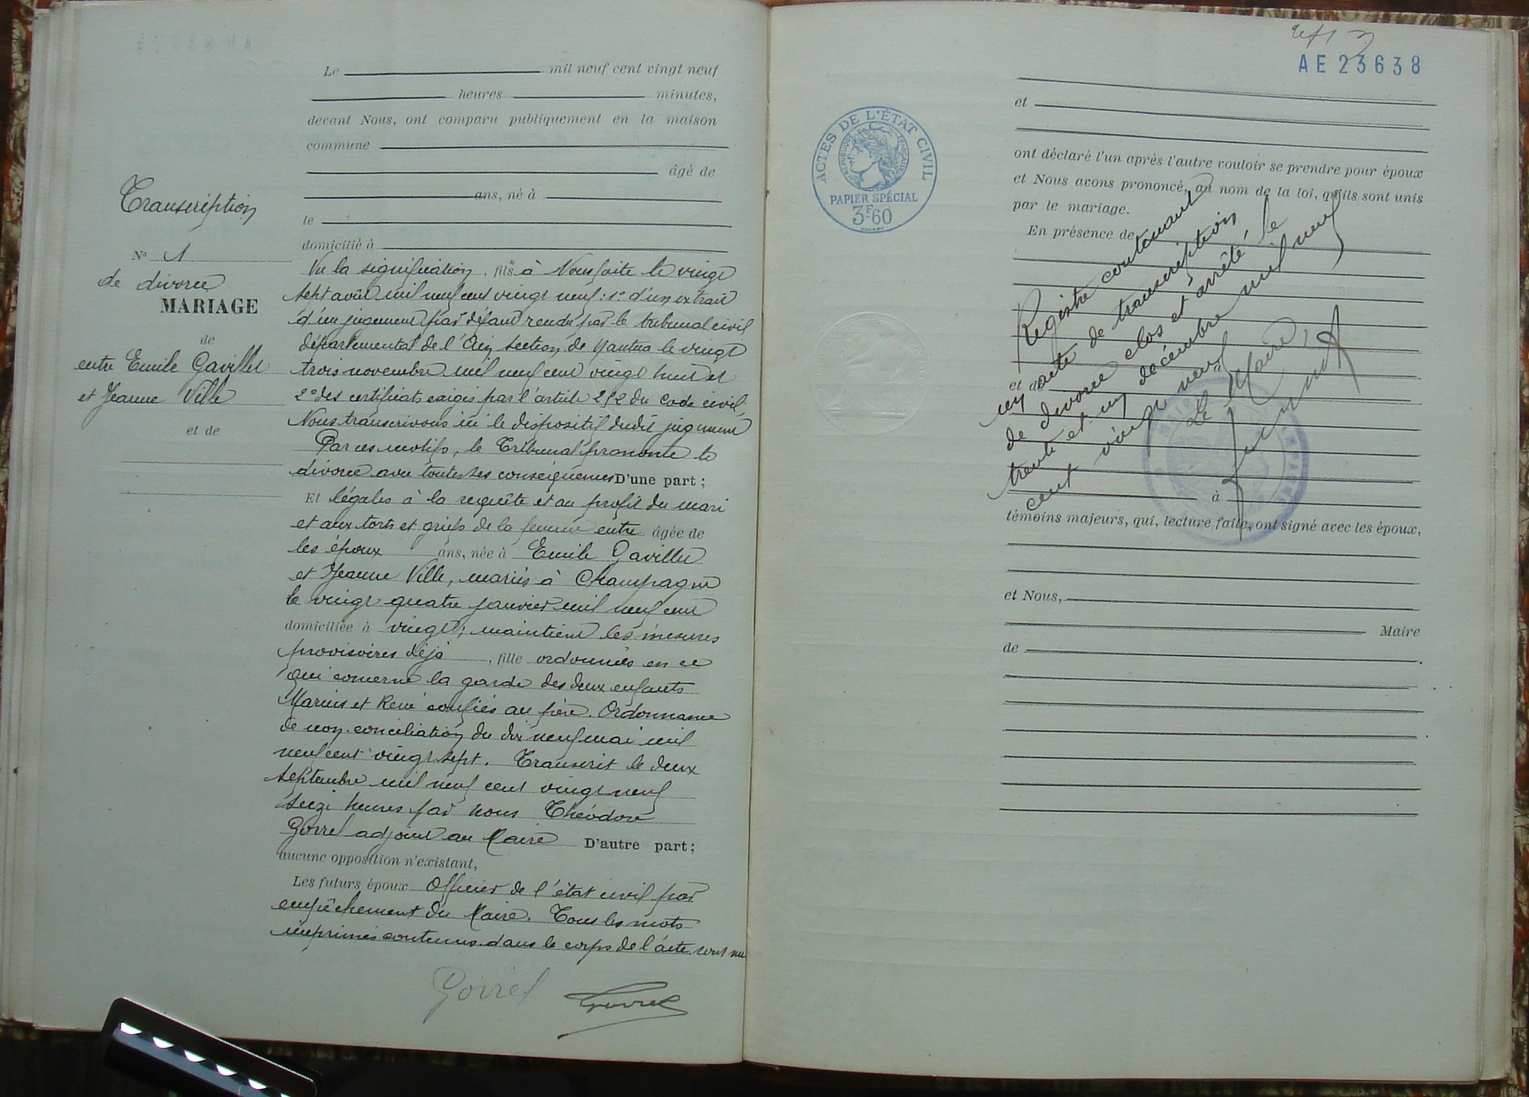 Le mil neuf cent vingt neuf
heures minutes,
devant Nous, ont comparu publiquement en la maison
commune
âgé de
ans, né à
le
domicilié à
Transcription
N° 1
de divorce
MARIAGE
de
entre Emile Gavillet
et Jeanne Ville
et de
Vu la signification, fils à Nous faite le vingt
sept août mil neuf cent vingt neuf: 1° d'un extrait
d'un jugement par défaut rendu par le tribunal civil
départemental de l'Ain section de Nantua le vingt
trois novembre mil neuf cent vingt huit et
2° des certificats exigés par l'article 252 du Code civil,
Nous transcrivons ici le dispositif dudit jugement
Par ces motifs, le Tribunal prononce le
divorce avec toutes ses conséquences D'une part;
Et légales à la requête et au profit du mari
et aux torts et griefs de la femme entre âgée de
les époux ans, née à Emile Gavillet
et Jeanne Ville, mariés à Champagne
le vingt quatre janvier mil neuf cent
domiciliée à vingt; maintient les mesures
provisoires déjà, fille ordonnées en ce
qui concerne la garde des deux enfants
Marius et René confiés au père. Ordonnance
de non conciliation du dix neuf mai mil
neuf cent vingt sept. Transcrit le deux
septembre mil neuf cent vingt neuf
seize heures par Nous Théodore
Goirel adjoint au Maire D'autre part;
aucune opposition n'existant,
Les futurs époux Officier de l'état civil par
empêchement du Maire. Tous les mots
imprimés contenus dans le corps de l'acte sont nuls
Goirel Goirel
AE 23638
ACTES DE L'ÉTAT CIVIL
PAPIER SPÉCIAL
3F60
et
ont déclaré l'un après l'autre vouloir se prendre pour époux
et Nous avons prononcé, au nom de la loi, qu'ils sont unis
par le mariage.
En présence de
Registre contenant
un acte de transcription
de divorce clos et arrêté le
trente et un décembre mil neuf
cent vingt neuf
Le Maire,
et de
à
témoins majeurs, qui, lecture faite, ont signé avec les époux,
et Nous,
Maire
de